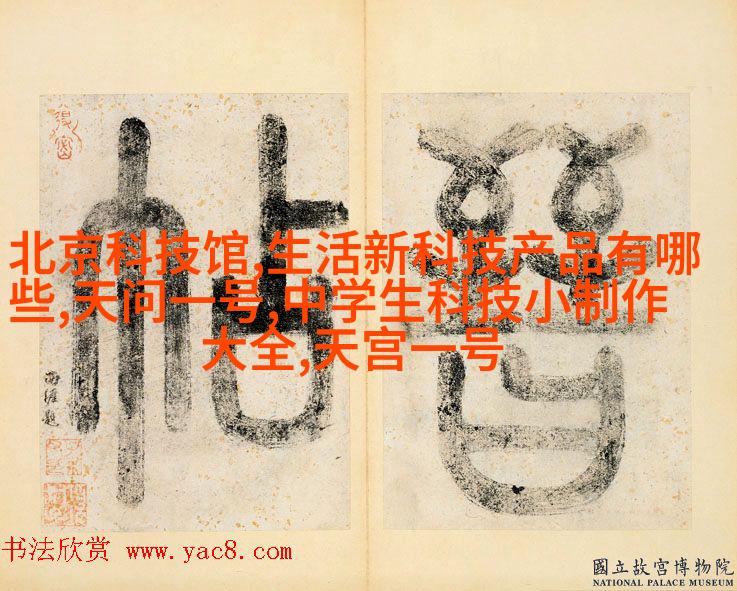 晉帖
西涯題
北京科技馆,生活新科技产品有哪
些,天问一号,中学生科技小制作
大全,天宫一号
书法欣赏 www.yac8.com
國立故宮博物院
NATIONAL PALACE MUSEUM